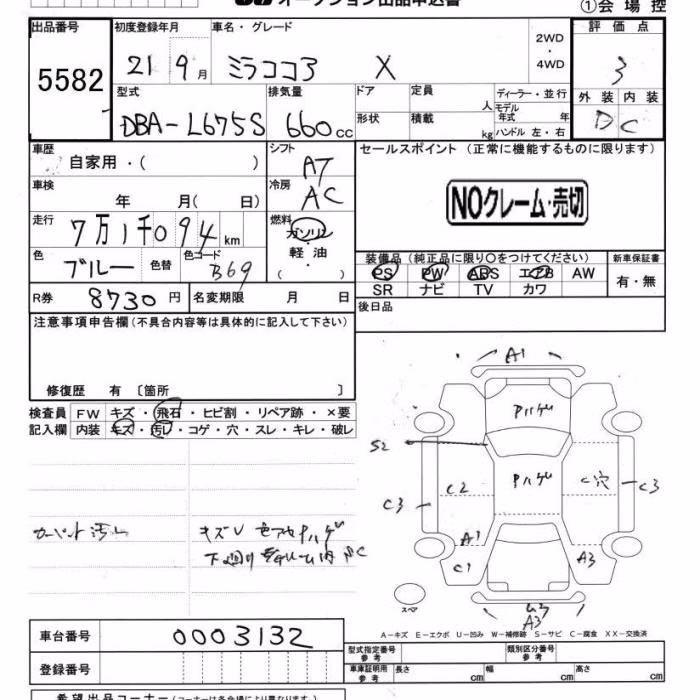 オークション出品申込書
①会場控
出品番号 初度登録年月 車名・グレード 2WD・4WD 評価点
5582
21 9月 ミラココア X
3
型式 排気量 ドア 定員 人 ディーラー・並行 外装 内装
DBA-L675S 660cc
形状 積載 kg モデル年式 年 ハンドル 左・右
D C
車歴 自家用・( ) シフト AT
セールスポイント (正常に機能するものに限ります)
車検 年 月( 日) 冷房 AC
NOクレーム・売切
走行 7万1千094km 燃料 ガソリン・軽油・( )
色 ブルー 色替 色コード B69
装備品 (純正品に限り○をつけてください) 新車保証書
PS PW ABS エアB AW 有・無
SR ナビ TV カワ
R券 8730円 名変期限 月 日
後日品
注意事項申告欄(不具合内容等は具体的に記入して下さい)
修復歴 有 〔箇所 〕
検査員記入欄
FW キズ・飛石・ヒビ割・リペア跡・×要
内装 キズ・汚レ・コゲ・穴・スレ・キレ・破レ
カーペット汚レ
キズU
A1
Pハゲ
S2
C3 C2 Pハゲ C穴 C3
A1
C1 A3
スペア
A3
A-キズ E-エクボ U-凹み W-補修跡 S-サビ C-腐食 XX-交換済
車台番号 0003132
登録番号
型式指定番号参考 類別区分番号参考
車庫証明用参考 長さ cm 幅 cm 高さ cm
希望出品コーナー(コーナーは各会場により異なります)